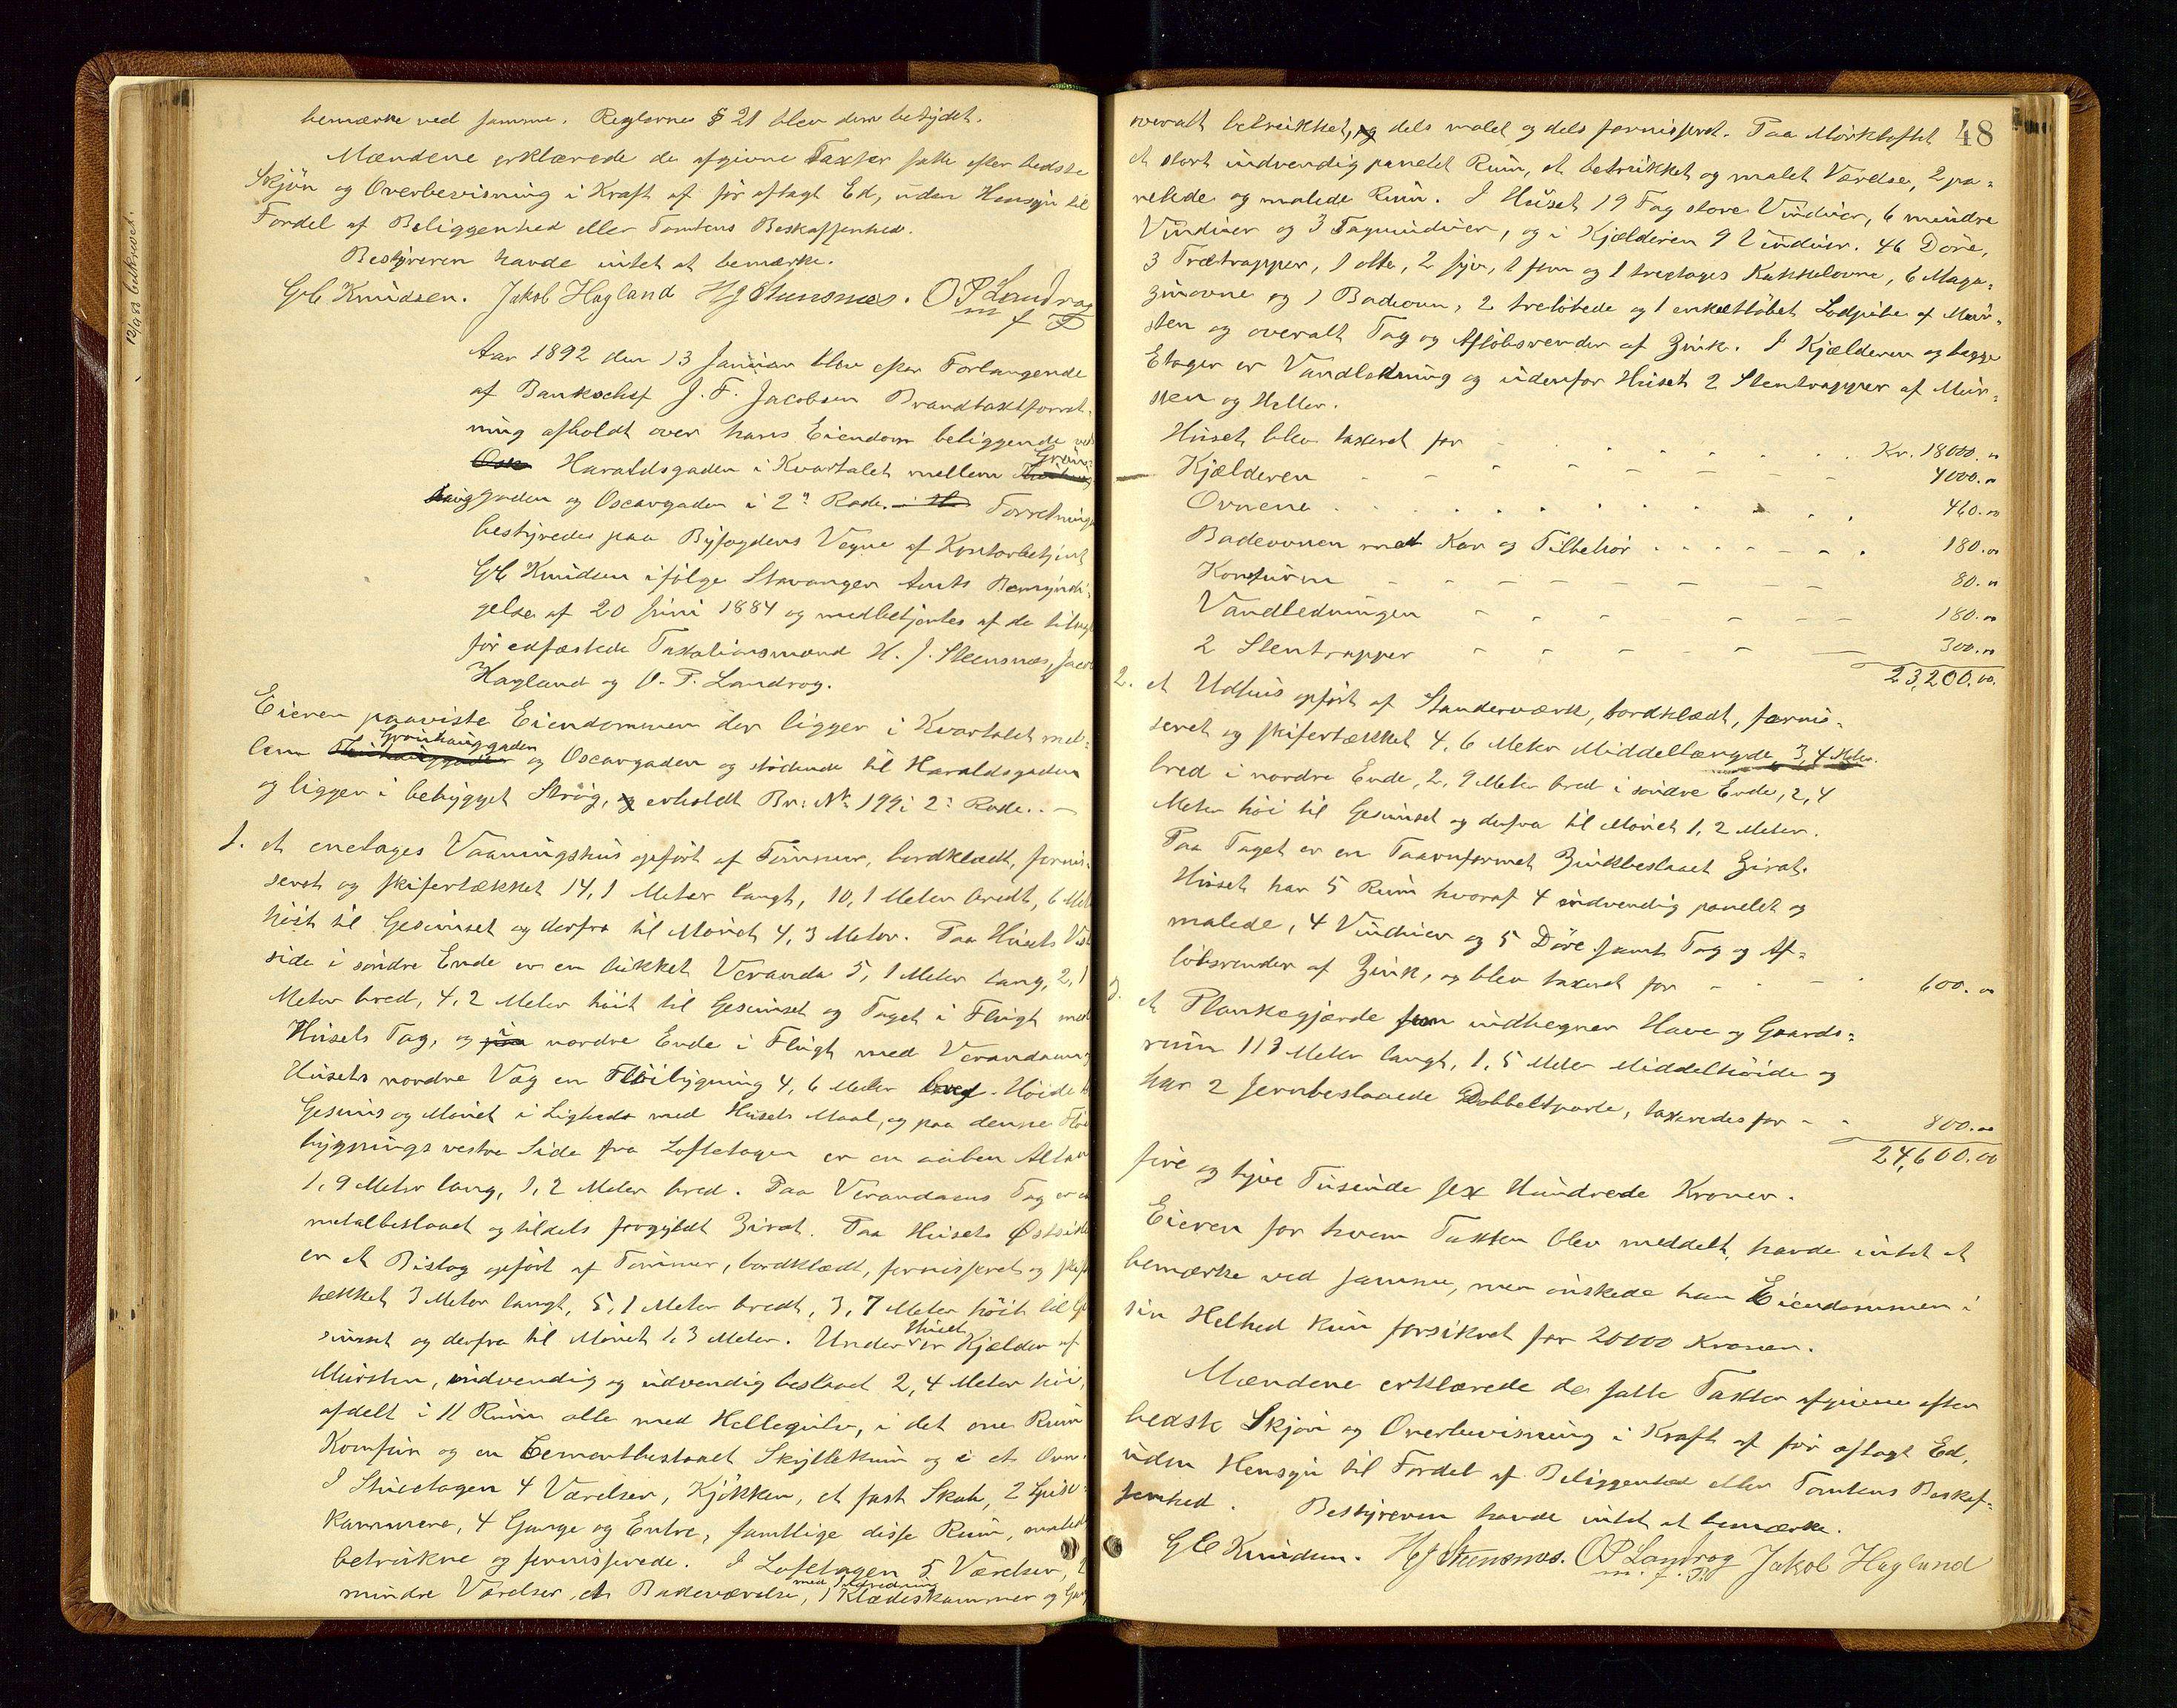 bemærke ved samme. Reglernes § 21 blev dem betydet.
Mændene erklærede de afgivne Taxter satte efter bedste
Skjön og Overbevisning i Kraft af för aflagt Ed, uden Hensyn til
Fordel af Beliggenhed eller Tomtens Beskaffenhed.
Bestyreren havde intet at bemærke.
GC Knudsen. Jakob Hagland HJ Steensnæs. OP Landrog
m f P
Aar 1892 den 13 Januar blev efter Forlangende
af Bankchef J. F. Jacobsen Brandtaxtforret-
ning afholdt over hans Eiendom beliggende ved
Haraldsgaden i Kvartalet mellem Grön-
hauggaden og Oscargaden i 2n Rode. Forretningen
bestyredes paa Byfogdens Vegne af Kontorbetjent
GC Knudsen ifölge Stavanger Amts Bemyndi-
gelse af 20 Juni 1884 og medbetjentes af de
för edfæstede Taxationsmænd H. J. Steensnæs, Jacob
Hagland og O. P. Landrog.
Eieren paaviste Eiendommen der ligger i Kvartalet mel-
lem Grönhauggaden og Oscargaden og stödende til Haraldsgaden
og ligger i bebygget Strög, erholdt Br: No 199 i 2: Rode. -
1. et enetages Vaaningshus opfört af Tömmer, bordklædt, fernis-
seret og skifertækket 14,1 Meter langt, 10,1 Meter bredt, 6 Meter
höit til Gesimset og derfra til Mönet 4,3 Meter. Paa Husets Vest
side i söndre Ende er en lukket Veranda 5,1 Meter lang, 2,1
Meter bred, 4,2 Meter höit til Gesimset og Taget i Flugt med
Husets Tag, og nordre Ende i Flugt med Verandaen og
Husets nordre Væg en Flöibygning 4,6 Meter bred. Höide til
Gesims og Mönet i Lighed med Husets Maal, og paa denne Flöi
bygnings vestre Side fra Loftetagen er en aaben Altan
1,9 Meter lang, 1,2 Meter bred. Paa Verandaens Tag er en
metalbeslaaet og tildels forgyldt Zirat. Paa Husets Östside
er et Bislag opfört af Tömmer, bordklædt, fernisseret og skifer
tækket 3 Meter langt, 5,1 Meter bredt, 3,7 Meter höit til Ge
simset og derfra til Mönet 1,3 Meter. Under Huset er Kjælder af
Mursten, indvendig og udvendig beslaaet 2,4 Meter höi,
afdelt i 11 Rum alle med Hellegulv, i det ene Rum
Komfur og en Cementbeslaaet Skyllekum og i et Ovn.
I Stueetagen 4 Værelser, Kjökken, et fast Skab, 2 Spise-
kammere, 4 Gange og Entre, samtlige disse Rum, malede
betrukne og fernisserede. I Loftetagen 5 Værelser, 2
mindre Værelser, et Badeværelse, med Indredning 1 Klædeskammer og Gang
12/9 83 beskrevet.
48
overalt betrukket, dels malet og dels fernisseret. Paa Mörkloftet
et stort indvendig panelet Rum, et betrukket og malet Værelse, 2 pa-
nelede og malede Rum. I Huset 19 Fag store Vinduer, 6 mindre
Vinduer og 3 Tagvinduer, og i Kjælderen 9 Vinduer. 46 Döre,
3 Trætrapper, 1 otte, 2 syv, 1 fem og 1 treetages Kakkelovne, 6 Maga-
zinovne og 1 Badeovn, 2 treløbede og 1 enkeltlöbet Lodpibe af Mur-
sten og overalt Tag og Aflöbsrender af Zink. I Kjælderen og begge
Etager er Vandledning og udenfor Huset 2 Stentrapper af Mur-
sten og Heller.
Huset blev taxeret for Kr. 18000. 00
Kjælderen 4000. 00
Ovnene 460. 00
Badeovnen med Kar og Tilbehör 180. 00
Komfuren 80. 00
Vandledningen 180. 00
2 Stentrapper 300. 00
23,200. 00.
2. et Udhus opfört af Standerværk, bordklædt, fernis-
seret og skifertækket 4,6 Meter Middellængde, 3,4 Meter
bred i nordre Ende, 2,9 Meter bred i söndre Ende, 2,4
Meter höi til Gesimset og derfra til Mönet 1,2 Meter.
Paa Taget er en Taarnformet Zinkbeslaaet Zirat.
Huset har 5 Rum hvoraf 4 indvendig panelet og
malede, 4 Vinduer og 5 Döre samt Tag og Af-
löbsrender af Zink, og blev taxeret for 600. 00
3. et Plankegjærde som indhegner Have og Gaards-
rum 113 Meter langt, 1,5 Meter Middelhöide og
har 2 Jernbeslaaede Dobbeltporte, taxeredes for 800. 00
24,600. 00
fire og tyve Tusinde sex Hundrede Kroner.
Eieren for hvem Taxten blev meddelt, havde intet at
bemærke ved samme, men önskede han Eiendommen i
sin Helhed kun forsikret for 20000 Kroner.
Mændene erklærede de satte Taxter afgivne efter
bedste Skjön og Overbevisning i Kraft af för aflagt Ed,
uden Hensyn til Fordel af Beliggenhed eller Tomtens Beskaf-
fenhed. Bestyreren havde intet at bemærke.
GC Knudsen. HJ Steensnæs. OP Landrog Jakob Hagland
m. f. P.